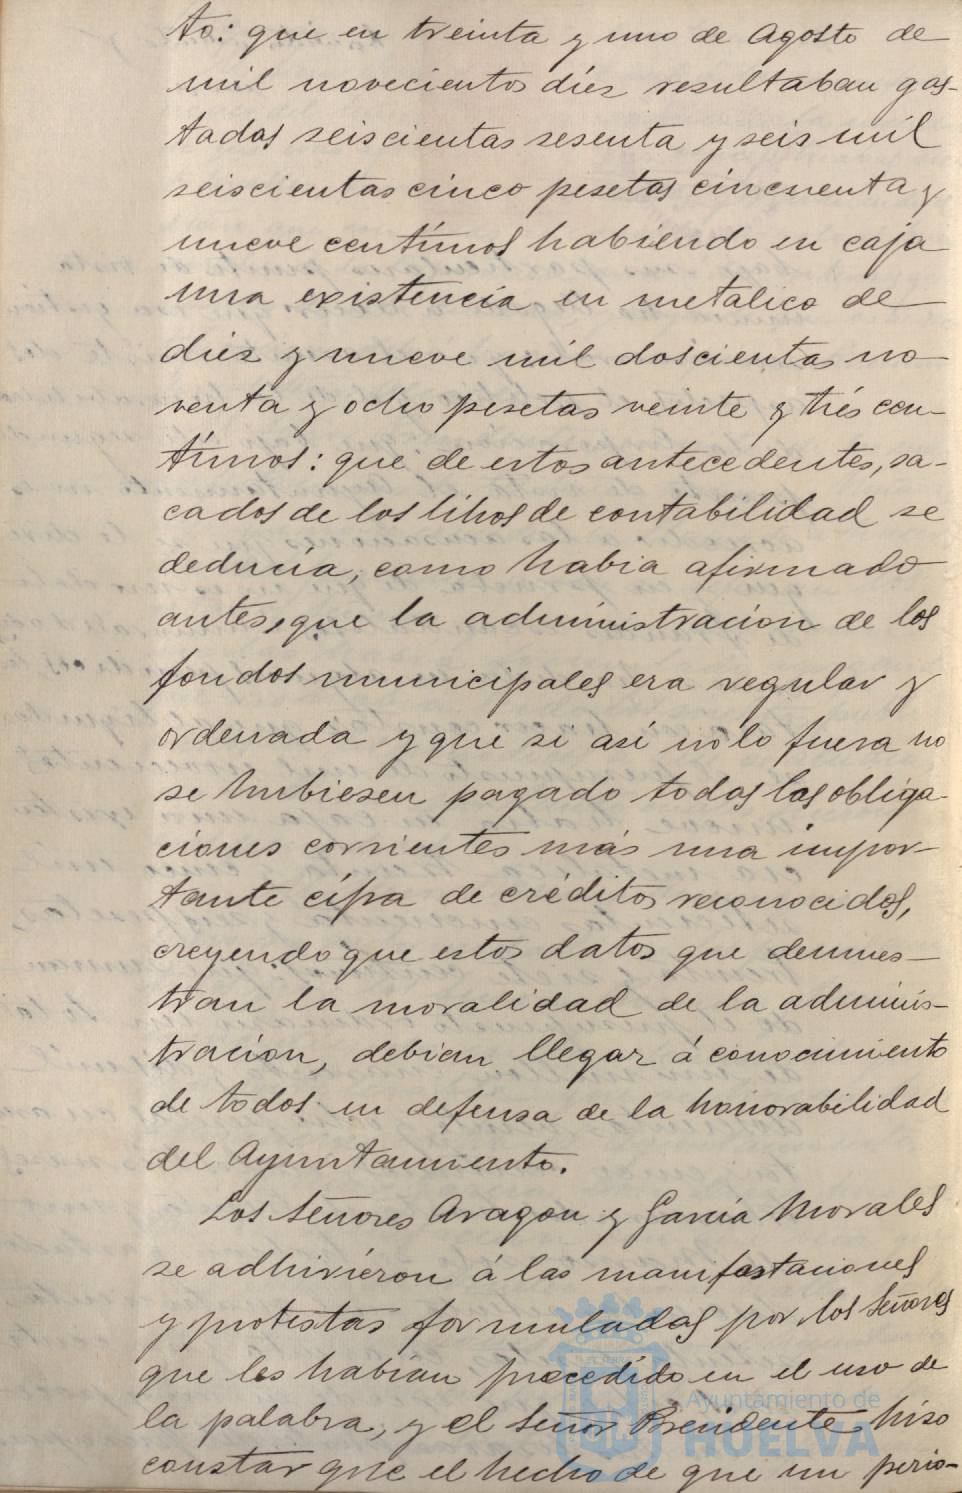 to: que en treinta y uno de Agosto de
mil novecientos diez resultaban gas-
tadas seiscientas sesenta y seis mil
seiscientas cinco pesetas cincuenta y
nueve centímos habiendo en caja
una existencia en metalico de
diez y nueve mil doscientas no-
venta y ocho pesetas veinte y trés cen-
tímos: que de estos antecedentes, sa-
cados de los libros de contabilidad se
deducia, como habia afirmado
antes, que la administracion de los
fondos municipales era regular y
ordenada y que si asi no lo fuera no
se hubiesen pagado todas las obliga-
ciones corrientes más una impor-
tante cifra de créditos reconocidos,
creyendo que estos datos que demues-
tran la moralidad de la adminis-
tracion, debian llegar á conocimiento
de todos en defensa de la honorabilidad
del Ayuntamiento.
Los Señores Aragon y Garcia Morales
se adhirieron á las manifestaciones
y protestas formuladas por los Señores
que les habian precedido en el uso de
la palabra, y el Señor Presidente hizo
constar que el hecho de que un perio-
Ayuntamiento de
HUELVA